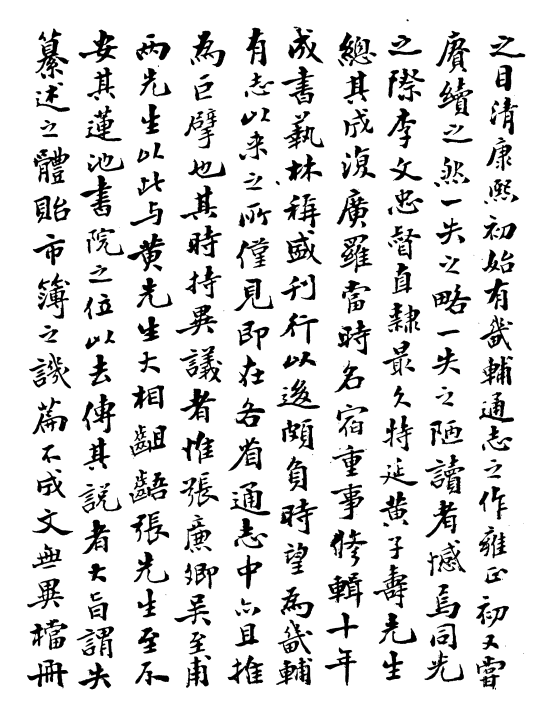 之目清康熙初始有畿輔通志之作雍正初又嘗
賡續之然一失之略一失之陋讀者憾焉同光
之際李文忠督直隸最久特延黄子壽先生
總其成復廣羅當時名宿重事修輯十年
成書藝林稱盛刊行以後頗負時望為畿輔
有志以来之所僅見即在各省通志中亦且推
為巨擘也其時持異議者惟張廉卿吴至甫
兩先生以此与黄先生大相齟齬張先生至不
安其蓮池書院之位以去傳其説者大旨謂失
纂述之體貽市簿之譏篇不成文無異檔冊